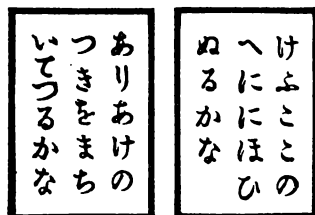 けふここの
へににほひ
ぬるかな
ありあけの
つきをまち
いてつるかな